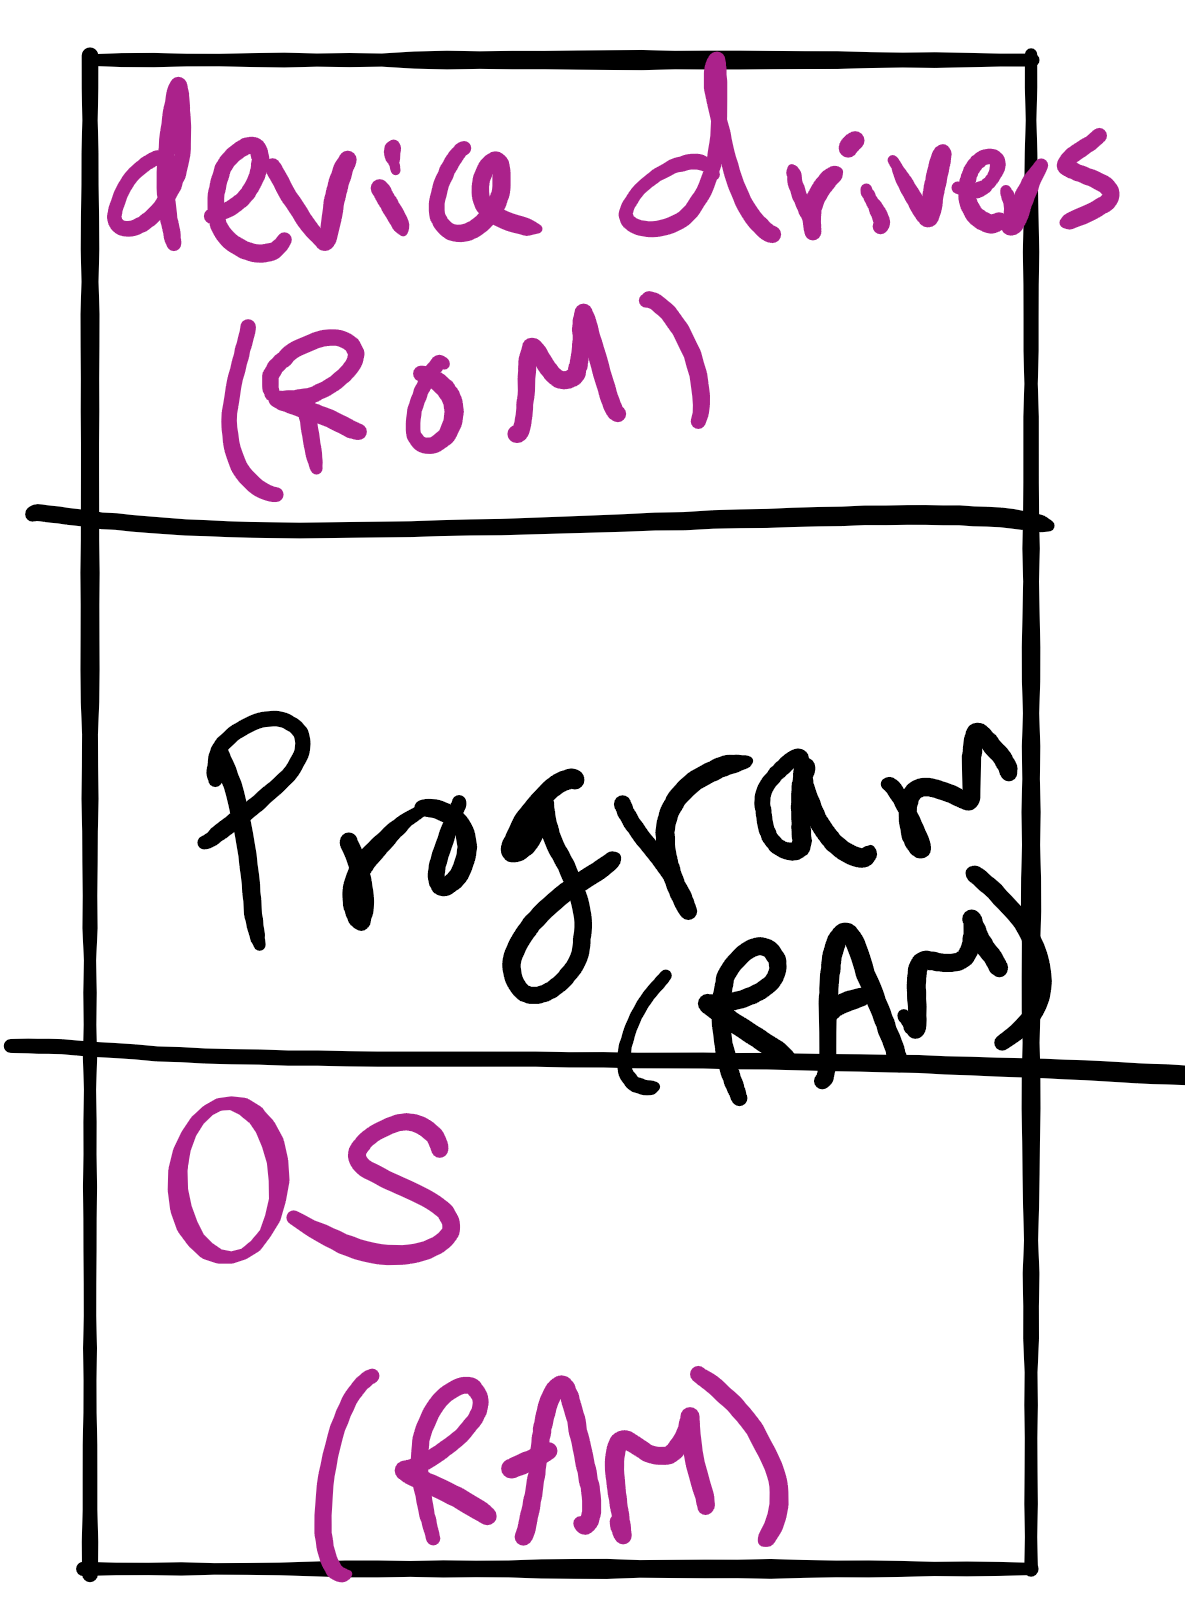 device drivers
(ROM)
Program
(RAM)
OS
(RAM)